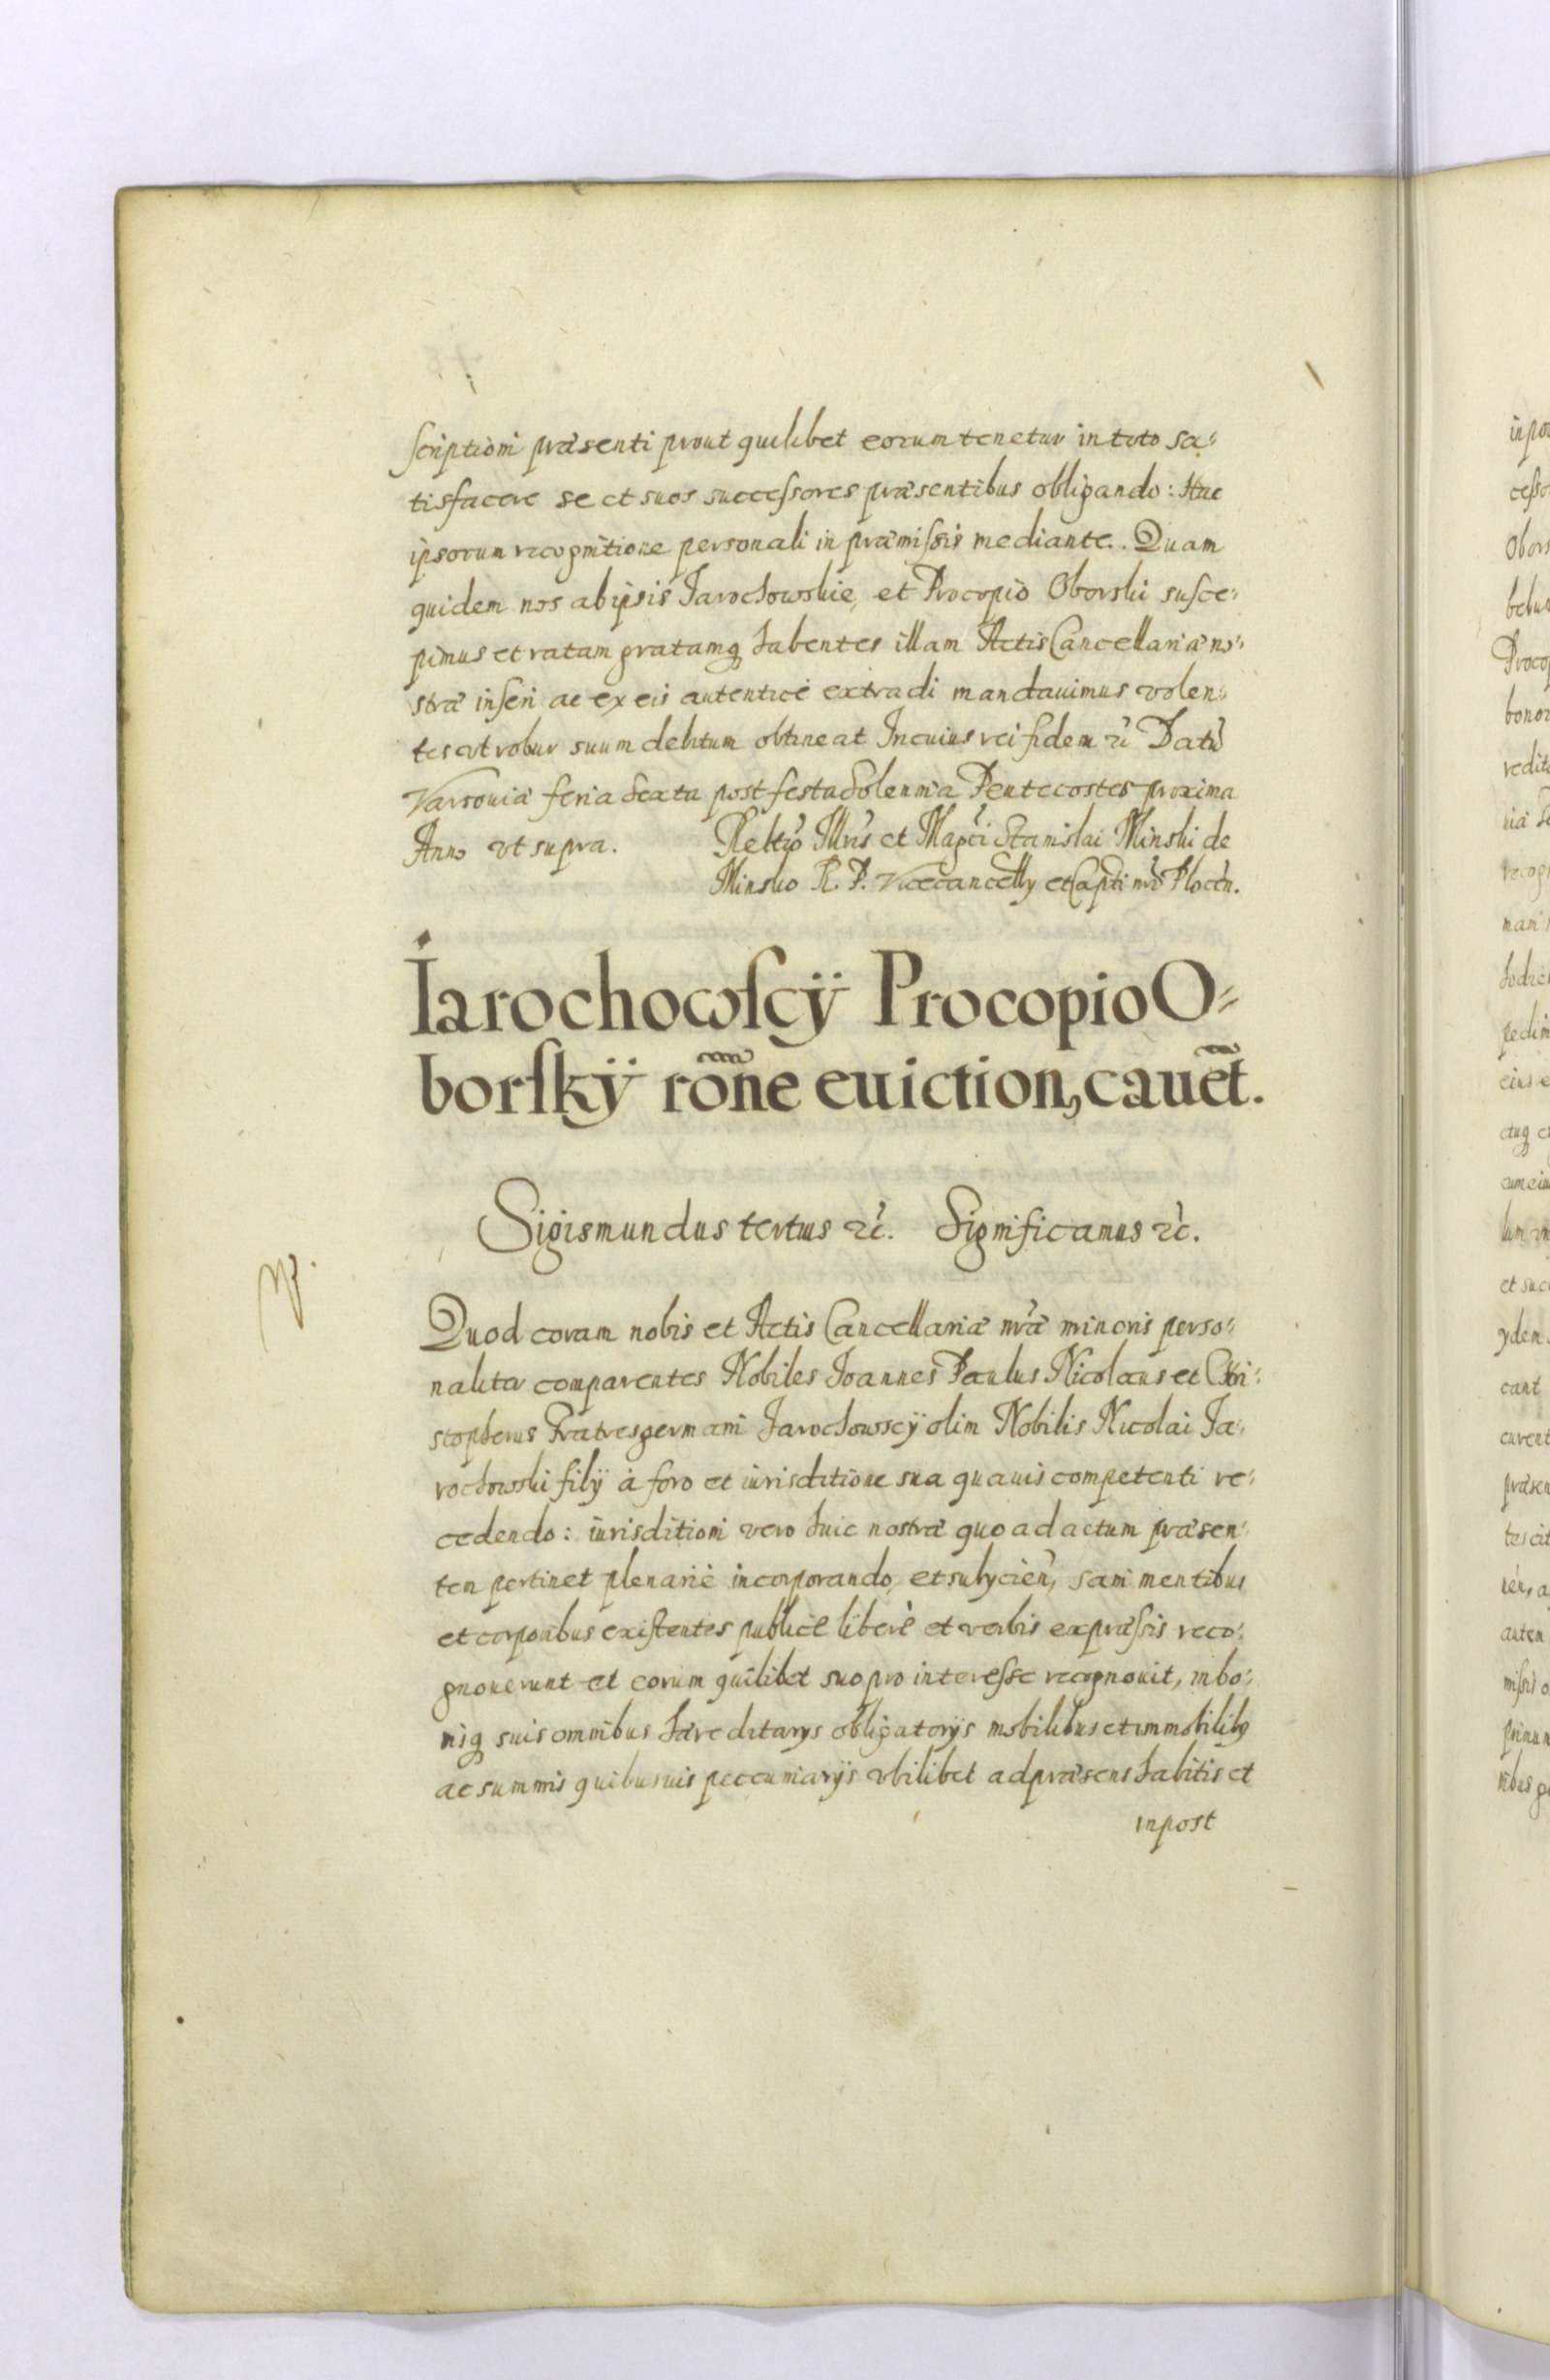 scriptioni præsenti prout quilibet eorum tenetur in toto sa⸗
tisfacere se et suos successores præsentibus obligando: Hac
ipsorum recognitione personali in præmissis mediante. Quam
quidem nos ab ipsis Jarochowskie, et Procopio Oborski susce⸗
pimus et ratam gratamq habentes illam Actis Cancellariæ no⸗
stræ inseri ac ex eis autenticè extradi mandauimus volen⸗
tes vt robur suum debitum obtineat In cuius rei fidem etc̃ Datũ
Varsouiæ feria Sexta post festa Solennia Pentecostes proxima
Anno vt supra. Reltio Illris et Magci Stanislai Minski de
Minsko R. P. Vicecancelly et Capti nri Plocen.
Iarochowscÿ Procopio O⸗
borskÿ rõne euiction, cauẽt.
Sigismundus tertius etc̃. Significamus etc̃.
Quod coram nobis et Actis Cancellariæ nræ minoris perso⸗
naliter comparentes Nobiles Joannes Paulus Nicolaus et Chri⸗
stopherus Fratres germani Jarochowscÿ olim Nobilis Nicolai Ja⸗
rochowski filÿ à foro et iurisditione sua quauis competenti re⸗
cedendo: iurisditioni vero huic nostræ quo ad actum præsen⸗
tem pertinet plenariè incorporando, et subycien, sani mentibus
et corporibus existentes publicè liberè et verbis expræssis reco⸗
gnouerunt et eorum quilibet suo pro interesse recognouit, in bo⸗
nisq suis omnibus hæreditarys obligatorÿs mobilibus et immobilibq
ac summis quibusuis peccuniarÿs vbilibet ad præsens habitis et
inpost